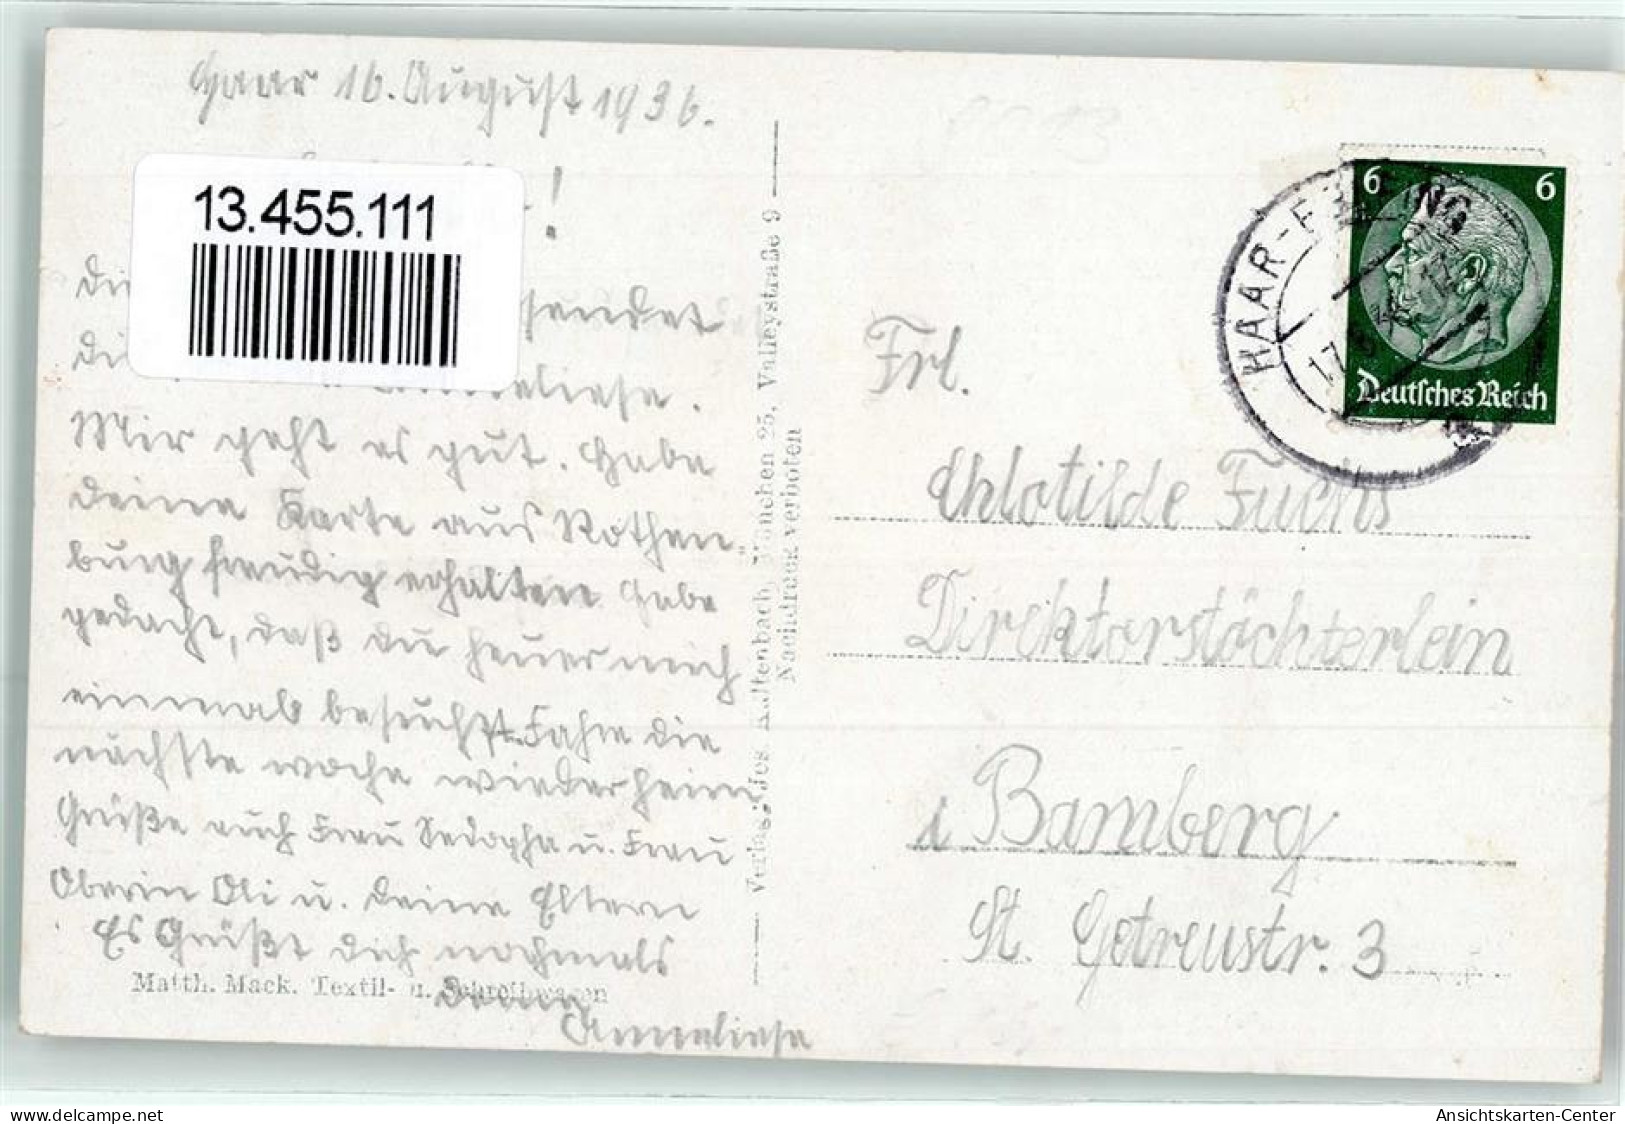 Haar 16. August 1936.
13.455.111
!
sendet
Annaliese.
Mir geht es gut. Habe
deine Karte aus Rothen
burg freudig erhalten Habe
gedacht, daß du heuer mich
einmal besuchst. Fahre die
nächste woche wieder heim
Grüße auch Frau u. Frau
Oberin Oli u. deine Eltern
Es Grüßt dich nochmals
deine
Annaliese
Matth. Mack. Textil- u. Schreibwaren
Verlag: Jos. Kaltenbach, München 25, Valleystraße 9
Nachdruck verboten
HAAR-EGLFING
17.8.
6 6
Deutsches Reich
Frl.
Chlotilde Fuchs
Direktorstöchterlein
i Bamberg
St. Getreustr. 3
Ansichtskarten-Center